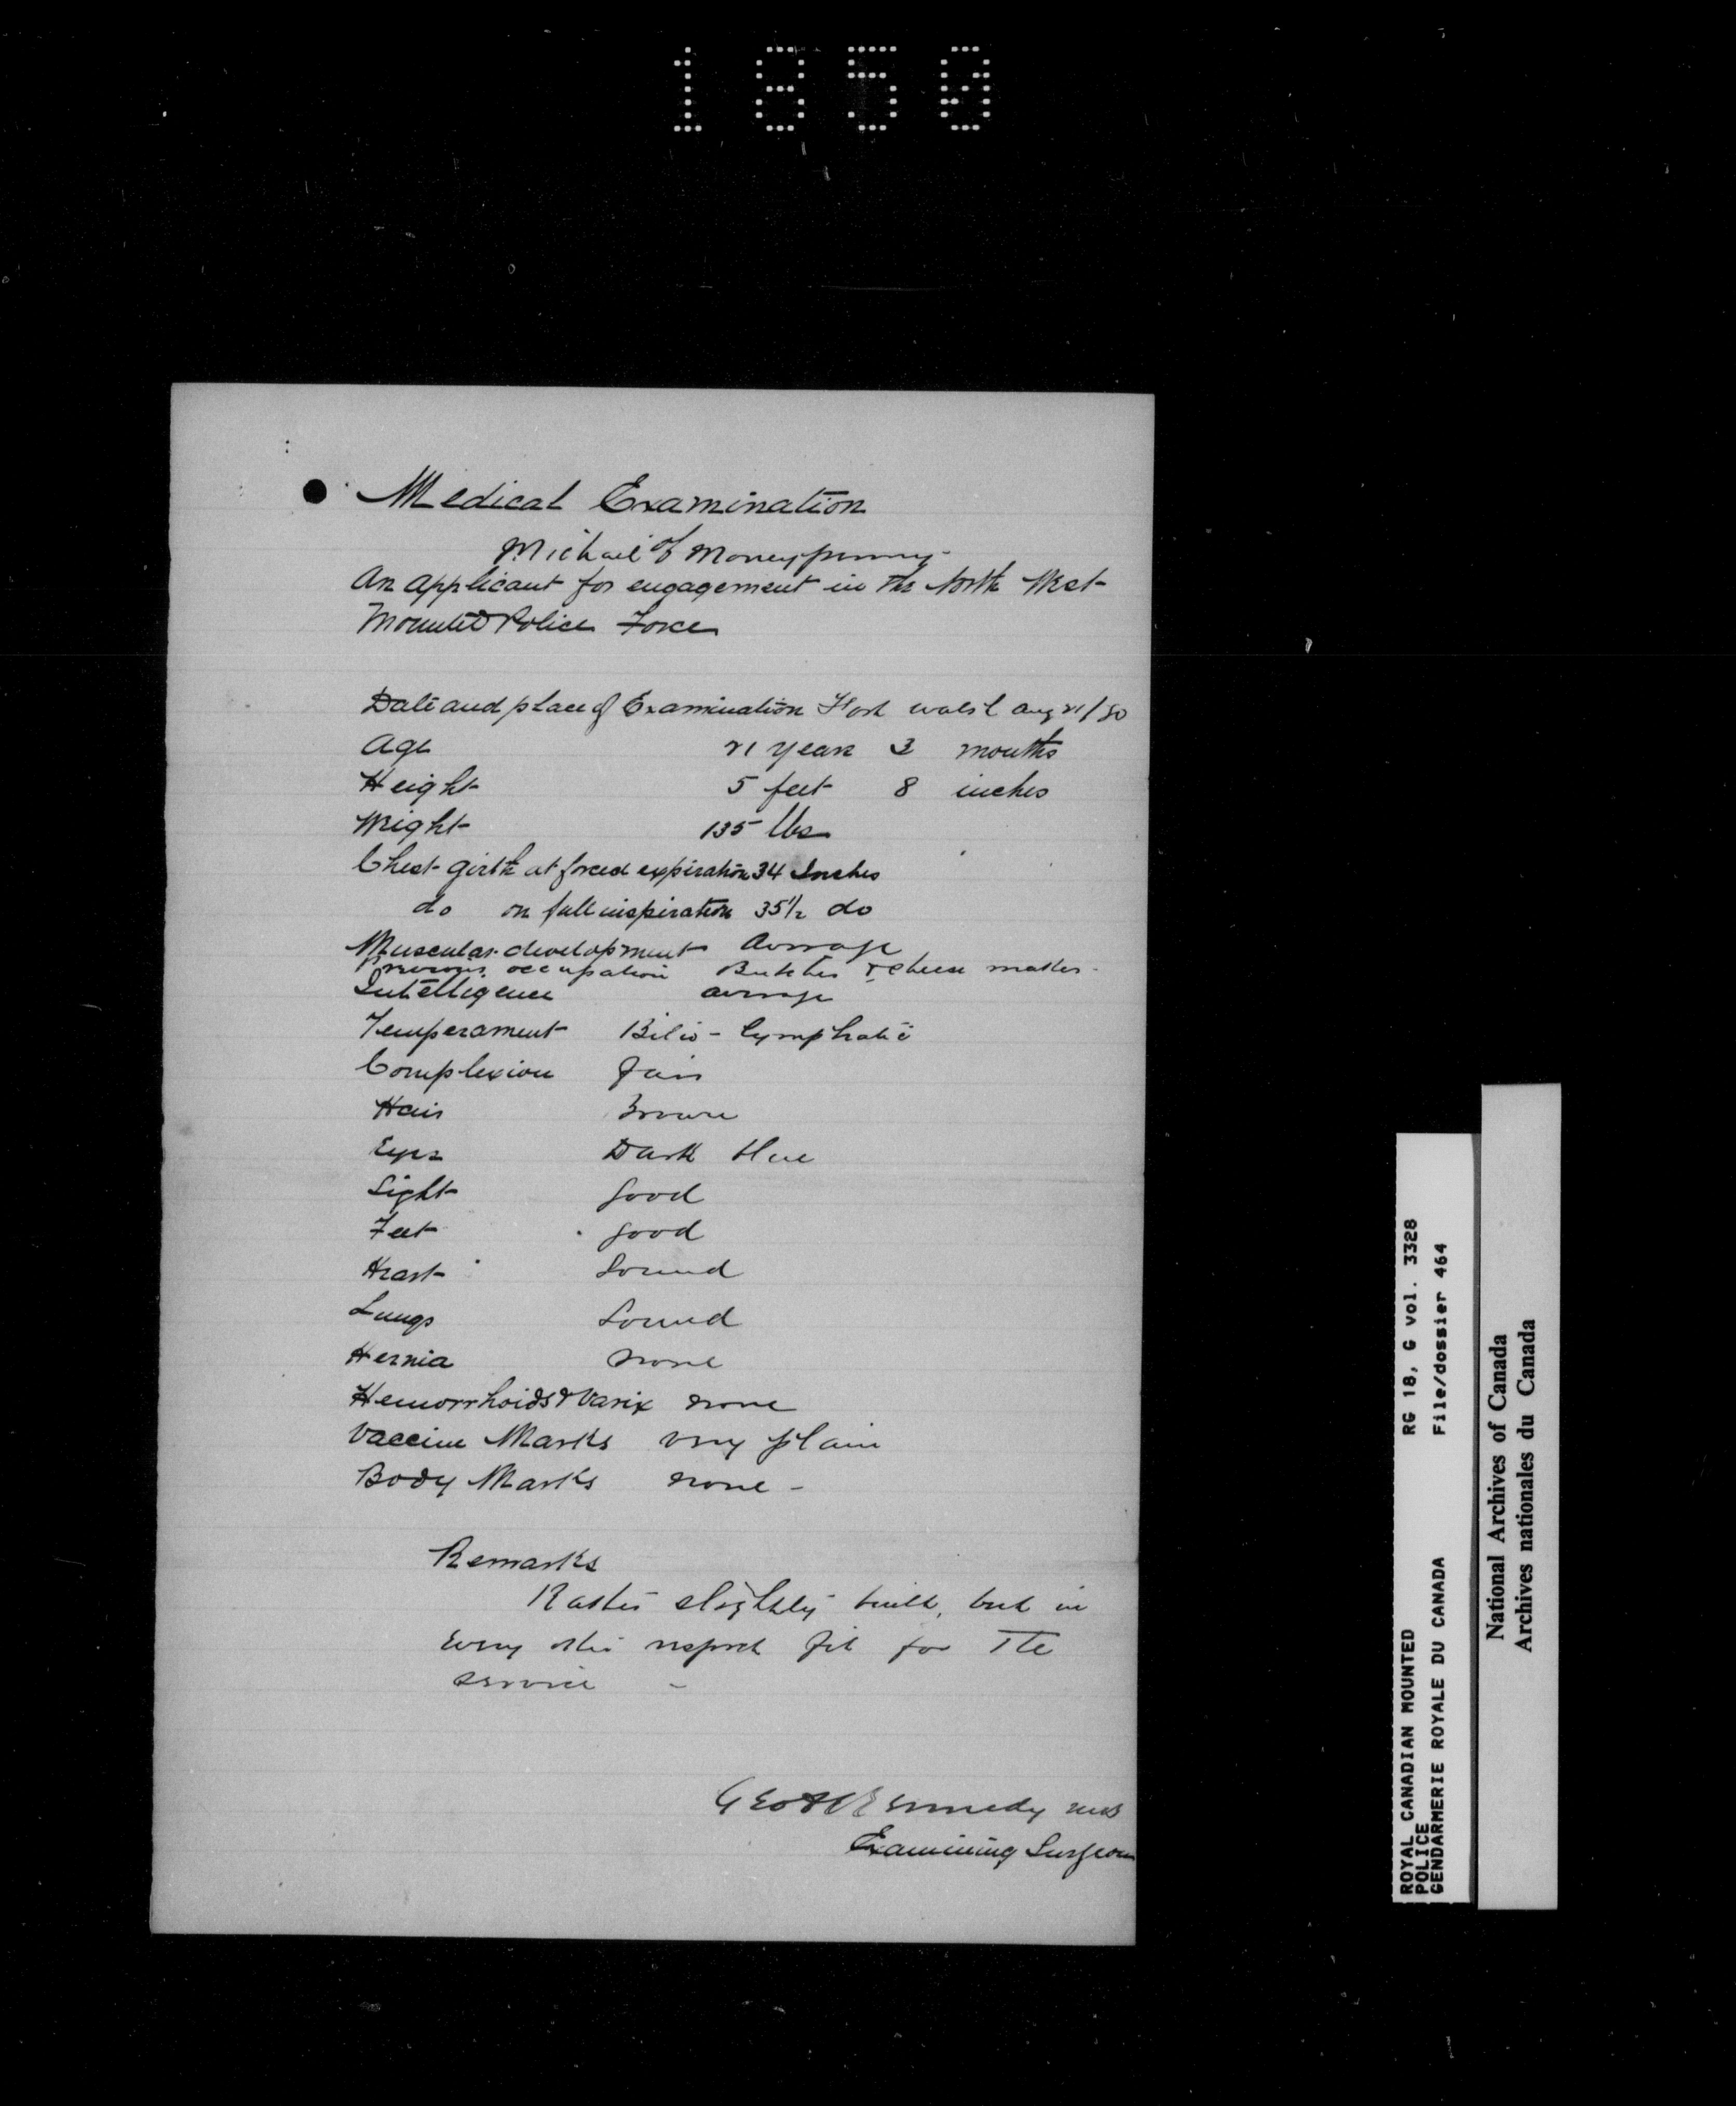 1850
Medical Examination
of
Michael Moneypenny
An applicant for engagement in the North West
Mounted Police Force
Date and place of Examination Fort Walsh Aug 21/80
Age 21 years 3 months
Height 5 feet 8 inches
Weight 135 lbs
Chest girth at forced expiration 34 Inches
do on full inspiration 35 1/2 do
Muscular development Average
Previous occupation Butcher & Cheese maker
Intelligence average
Temperament Bilio-lymphatic
Complexion Fair
Hair Brown
Eyes Dark blue
Sight good
Feet good
Heart Sound
Lungs Sound
Hernia none
Hemorrhoids & Varix none
Vaccine Marks very plain
Body Marks none -
Remarks
Rather slightly built, but in
every other respect fit for the
service -
Geo A Kennedy MD
Examining Surgeon
ROYAL CANADIAN MOUNTED RG 18, G vol. 3328
POLICE
GENDARMERIE ROYALE DU CANADA File/dossier 464
National Archives of Canada
Archives nationales du Canada